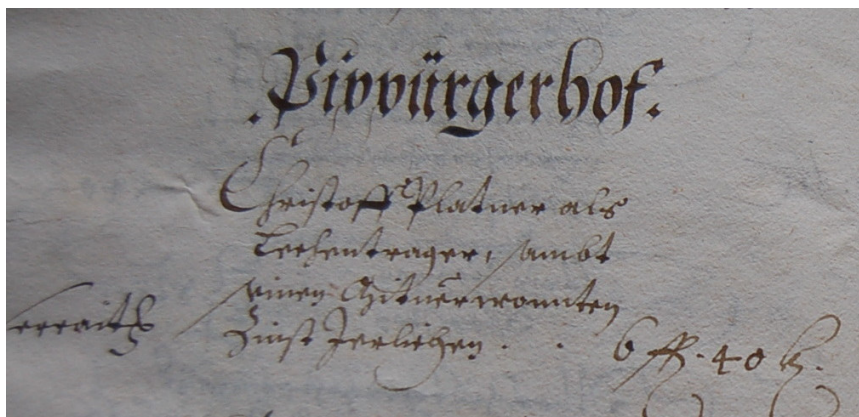 . Pippürgerhof .
Christoff Platner als
Lechentrager, sambt
seinen Mitverwonnten
Zinst Jerlichen . . 6 fl. 40 k.